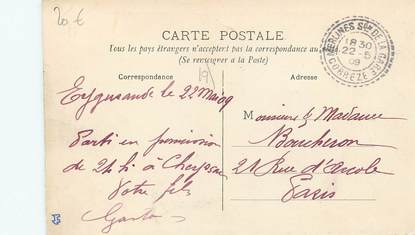 20 €
CARTE POSTALE
Tous les pays étrangers n'acceptent pas la correspondance au
(Se renseigner à la Poste)
Correspondance
Adresse
19
MERLINES Son DE LA GARE
18 30
22 - 5
09
CORRÈZE
Eygurande le 22 Mai 09
Parti en permission
de 24 h à
Votre fils
Monsieur & Madame
Boucheron
21 Rue d'Arcole
Paris